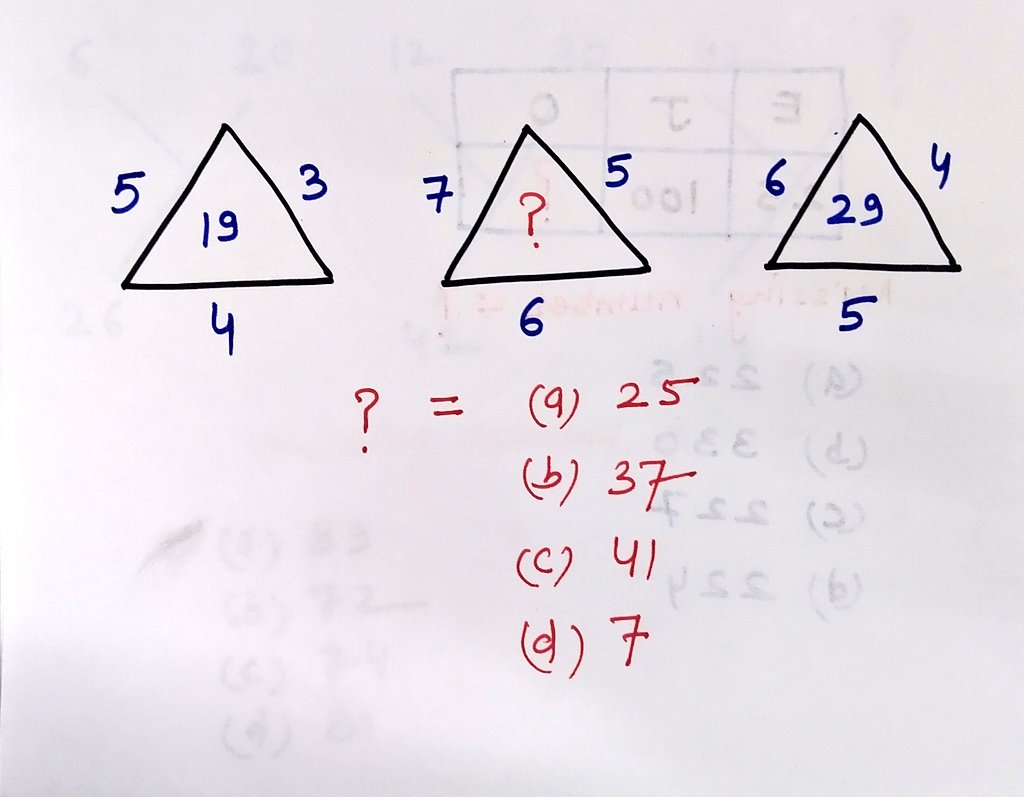 5 3 7 5 6 4
19 ? 29
4 6 5
? = (a) 25
(b) 37
(c) 41
(d) 7